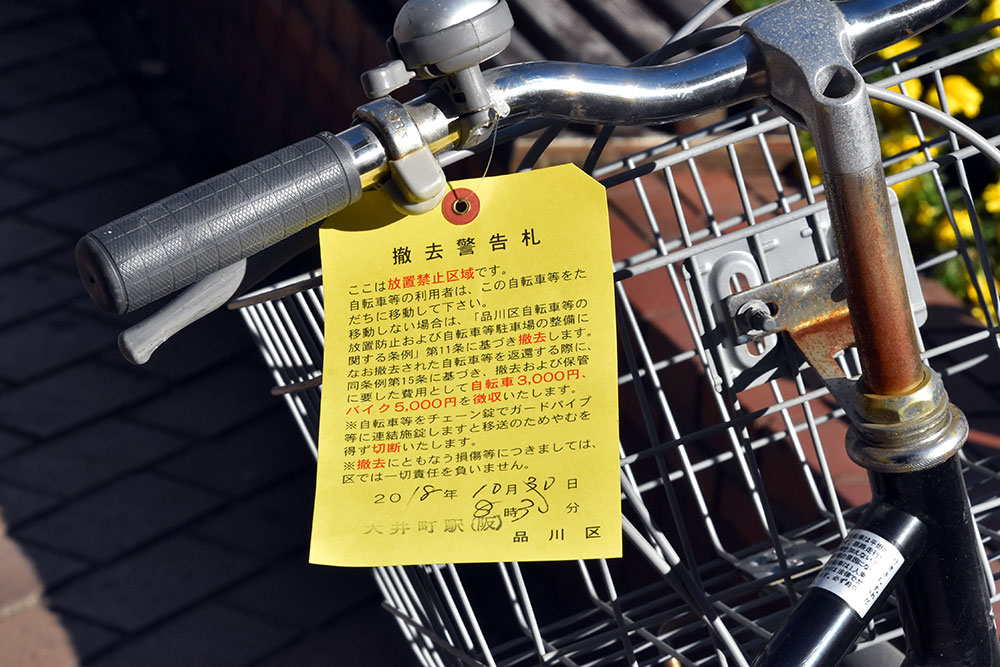 撤去警告札
ここは放置禁止区域です。
自転車等の利用者は、この自転車等をた
だちに移動して下さい。
移動しない場合は、「品川区自転車等の
放置防止および自転車等駐車場の整備に
関する条例」第11条に基づき撤去します。
なお撤去された自転車等を返還する際に、
同条例第15条に基づき、撤去および保管
に要した費用として自転車3,000円、
バイク5,000円を徴収いたします。
※自転車等をチェーン錠でガードパイプ
等に連結施錠しますと移送のためやむを
得ず切断いたします。
※撤去にともなう損傷等につきましては、
区では一切責任を負いません。
2018年 10月30日
8時35分
大井町駅(阪)
品川区